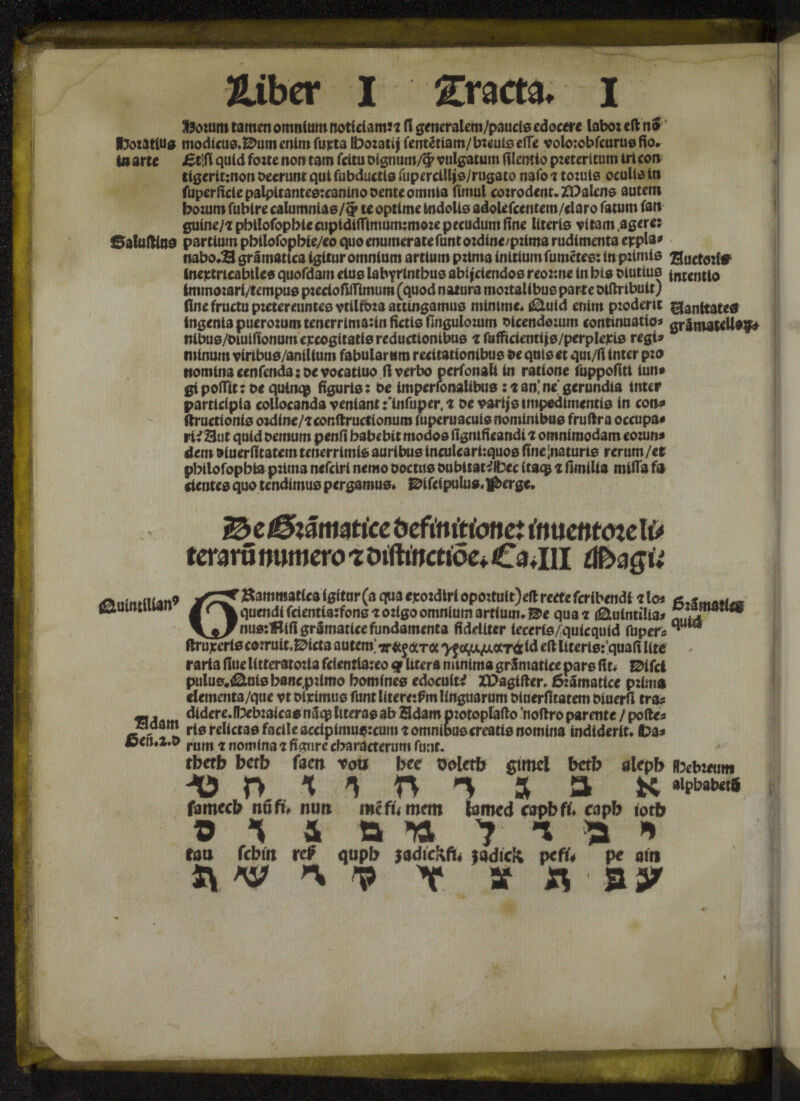 Liber I Tracta. I
Horum tamen omnium noticiam: ⁊ si generalem/paucis edocere labor est nō
Horatius modicus. Dum enim iuxta Horatij sentētiam/breuis esse volo: obscurus fio.
in arte Et si quid forte non tam scitu dignum/ꝙ vulgatum silentio preteritum iri con
tigerit: non deerunt qui subductis supercilijs/rugato naso ⁊ toruis oculis in
superficie palpitantes: canino dente omnia simul corrodent. Malens autem
horum subire calumnias/ꝙ te optime indolis adolescentem/claro fatum san
guine/⁊ philosophie cupidissimum: more pecudum sine literis vitam agere:
Salustius partium philosophie/eo quo enumerate sunt ordine/prima rudimenta expla⸗
nabo. A grāmatica igitur omnium artium prima initium sumētes: in primis Auctoris
inextricabiles quosdam eius labyrinthus abijciendos reor: ne in his diutius intentio
immorari/tempus preciosissimum (quod natura mortalibus parte distribuit)
sine fructu pretereuntes vtilfora attingamus minime. Quid enim proderit Uanitates
ingenia puerorum tenerrima: in fictis singulorum dicendorum continuatio⸗ grāmatelloꝝ
nibus/diuisionum excogitatis reductionibus ⁊ sufficientijs/perplexis regi⸗
minum viribus/anilium fabularum recitationibus de quis et qui/si inter pro
nomina censenda: de vocatiuo si verbo personali in ratione suppositi iun⸗
gi possit: de quinqꝫ figuris: de impersonalibus: ⁊ an, ne gerundia inter
participia collocanda veniant: insuper, ⁊ de varijs impedimentis in con⸗
structionis ordine/⁊ constructionum superuacuis nominibus frustra occupa⸗
ri? Aut quid demum pensi habebit modos significandi ⁊ omnimodam eorun⸗
dem diuersitatem tenerrimis auribus inculcari: quos sine naturis rerum/et
philosophia prima nesciri nemo doctus dubitat? Hec itaqꝫ ⁊ similia missa fa
cientes quo tendimus pergamus. Discipulus. Perge.
De Grāmatice definitione: inuentore li⸗
terarū numero ⁊ distinctiōe. Ca. III Magi:
Quintilianꝰ GRammatica igitur (a qua exordiri oportuit) est recte scribendi ⁊ lo⸗ Grāmatica
quendi scientia: fons ⁊ origo omnium artium. De qua ⁊ Quintilia⸗ quid
nus: Nisi grāmatice fundamenta fideliter ieceris/quicquid super⸗
struxeris corruit. Dicta autem παρα τα γραμματα id est literis: quasi lite
raria siue litteratoria scientia: eo ꝙ litera minima grāmatice pars sit. Disci
pulus. Quis hanc primo homines edocuit? Magister. Grāmatice prima
elementa/que vt diximus sunt litere: ẜm linguarum diuersitatem diuersi tra⸗
didere. Hebraicas nāqꝫ literas ab Adam protoplasto nostro parente / poste⸗
Adam ris relictas facile accipimus: cum ⁊ omnibus creatis nomina indiderit. Ha⸗
Gen.2.d rum ⁊ nomina ⁊ figure characterum sunt.
theth heth saen vou hee doleth gimel beth aleph Hebreum
א ב ג ד ה ו ז ח ט alphabetū
samech nūfi. nun mēfi. mem lamed caphfi. caph ioth
י כ ך ל מ ם נ ן ס
tau schin res quph zadickfi. zadick pefi. pe ain
ע פ ף צ ץ ק ר ש ת